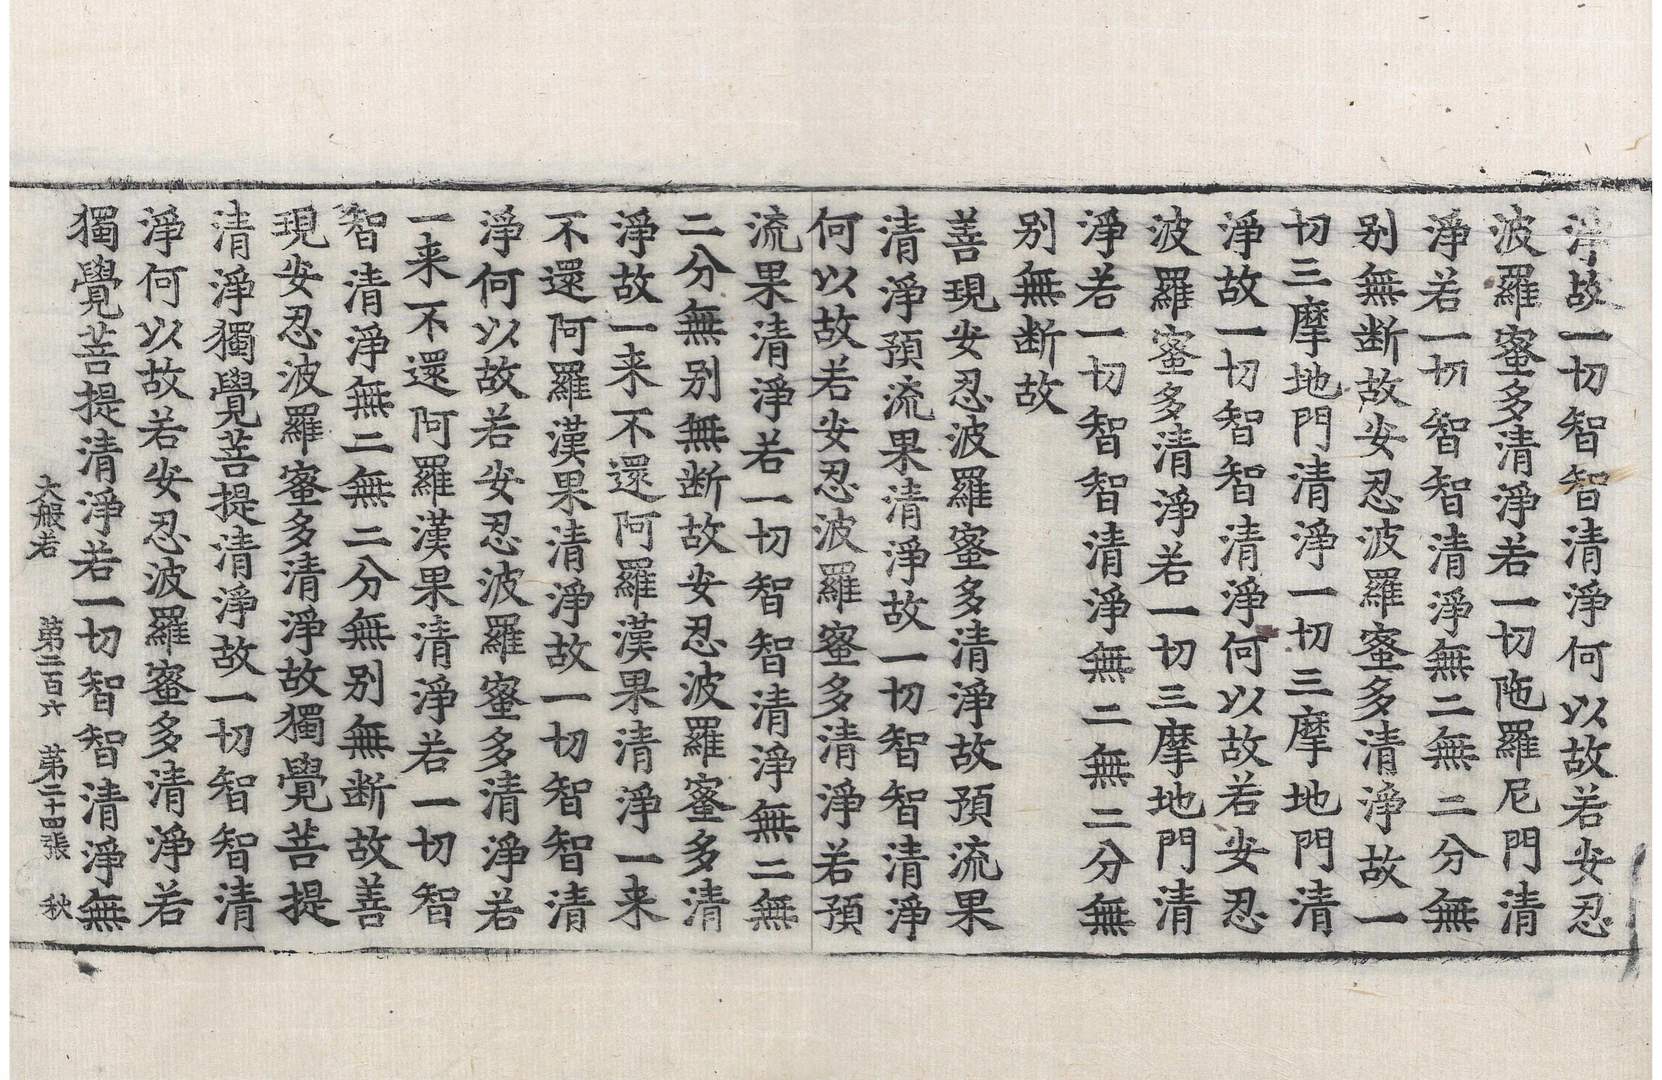 淨故一切智智清淨何以故若安忍
波羅蜜多清淨若一切陁羅尼門清
淨若一切智智清淨無二無二分無
别無断故安忍波羅蜜多清淨故一
切三摩地門清淨一切三摩地門清
淨故一切智智清淨何以故若安忍
波羅蜜多清淨若一切三摩地門清
淨若一切智智清淨無二無二分無
别無断故
善現安忍波羅蜜多清淨故預流果
清淨預流果清淨故一切智智清淨
何以故若安忍波羅蜜多清淨若預
流果清淨若一切智智清淨無二無
二分無别無断故安忍波羅蜜多清
淨故一来不還阿羅漢果清淨一来
不還阿羅漢果清淨故一切智智清
淨何以故若安忍波羅蜜多清淨若
一来不還阿羅漢果清淨若一切智
智清淨無二無二分無别無断故善
現安忍波羅蜜多清淨故獨覺菩提
清淨獨覺菩提清淨故一切智智清
淨何以故若安忍波羅蜜多清淨若
獨覺菩提清淨若一切智智清淨無
大般若 第二百六 第二十四張 秋